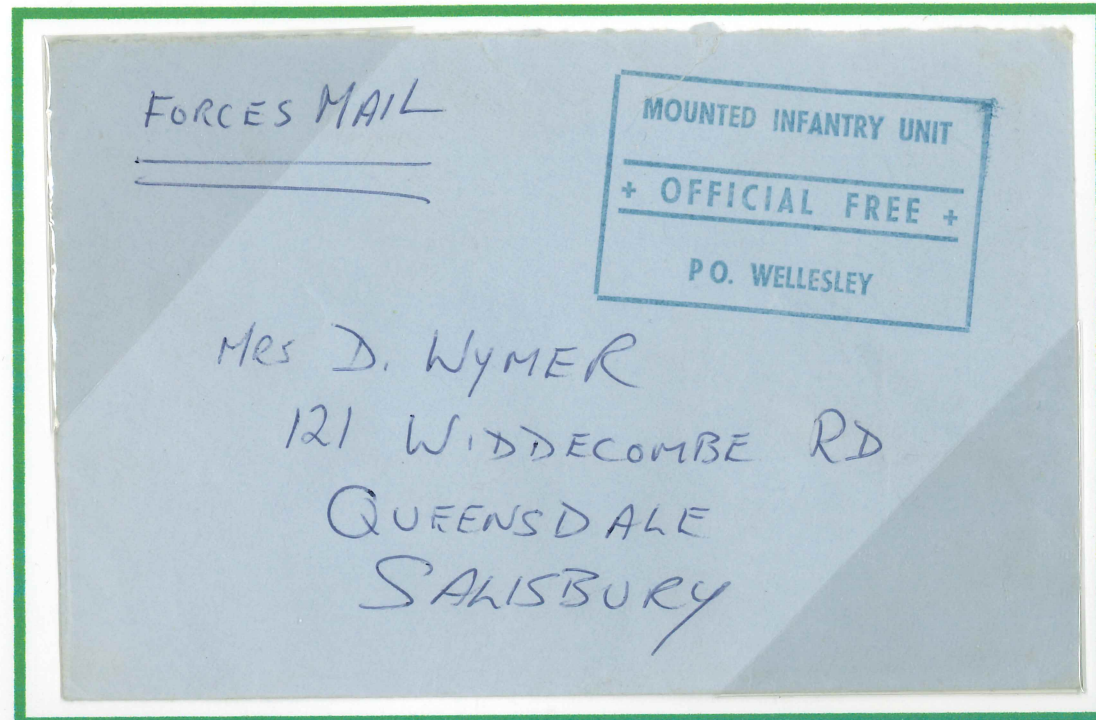 FORCES MAIL
MOUNTED INFANTRY UNIT
+ OFFICIAL FREE +
P O. WELLESLEY
Mrs D. WYMER
121 WIDDECOMBE RD
QUEENSDALE
SALISBURY